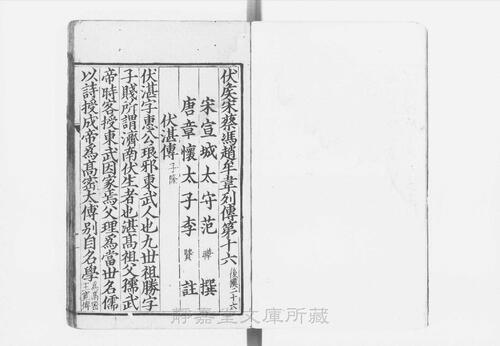 伏侯宋蔡馮趙牟韋列傳第十六 後漢二十六
宋宣城太守范曄撰
唐章懷太子李賢註
伏湛傳 子隆
伏湛字惠公琅邪東武人也九世祖勝字
子賤所謂濟南伏生者也湛高祖父孺武
帝時客授東武因家焉父理爲當世名儒
以詩授成帝爲高密太傅別自名學
靜嘉堂文庫所藏